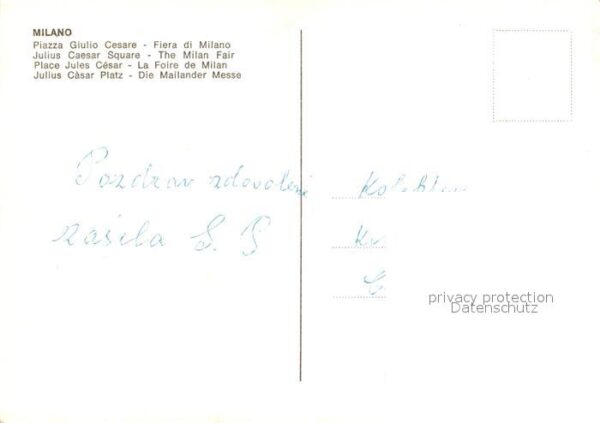 MILANO
Piazza Giulio Cesare - Fiera di Milano
Julius Caesar Square - The Milan Fair
Place Jules César - La Foire de Milan
Julius Càsar Platz - Die Mailander Messe
Pozdrav z dovolené
zasílá S. P
Kolektiv
privacy protection
Datenschutz